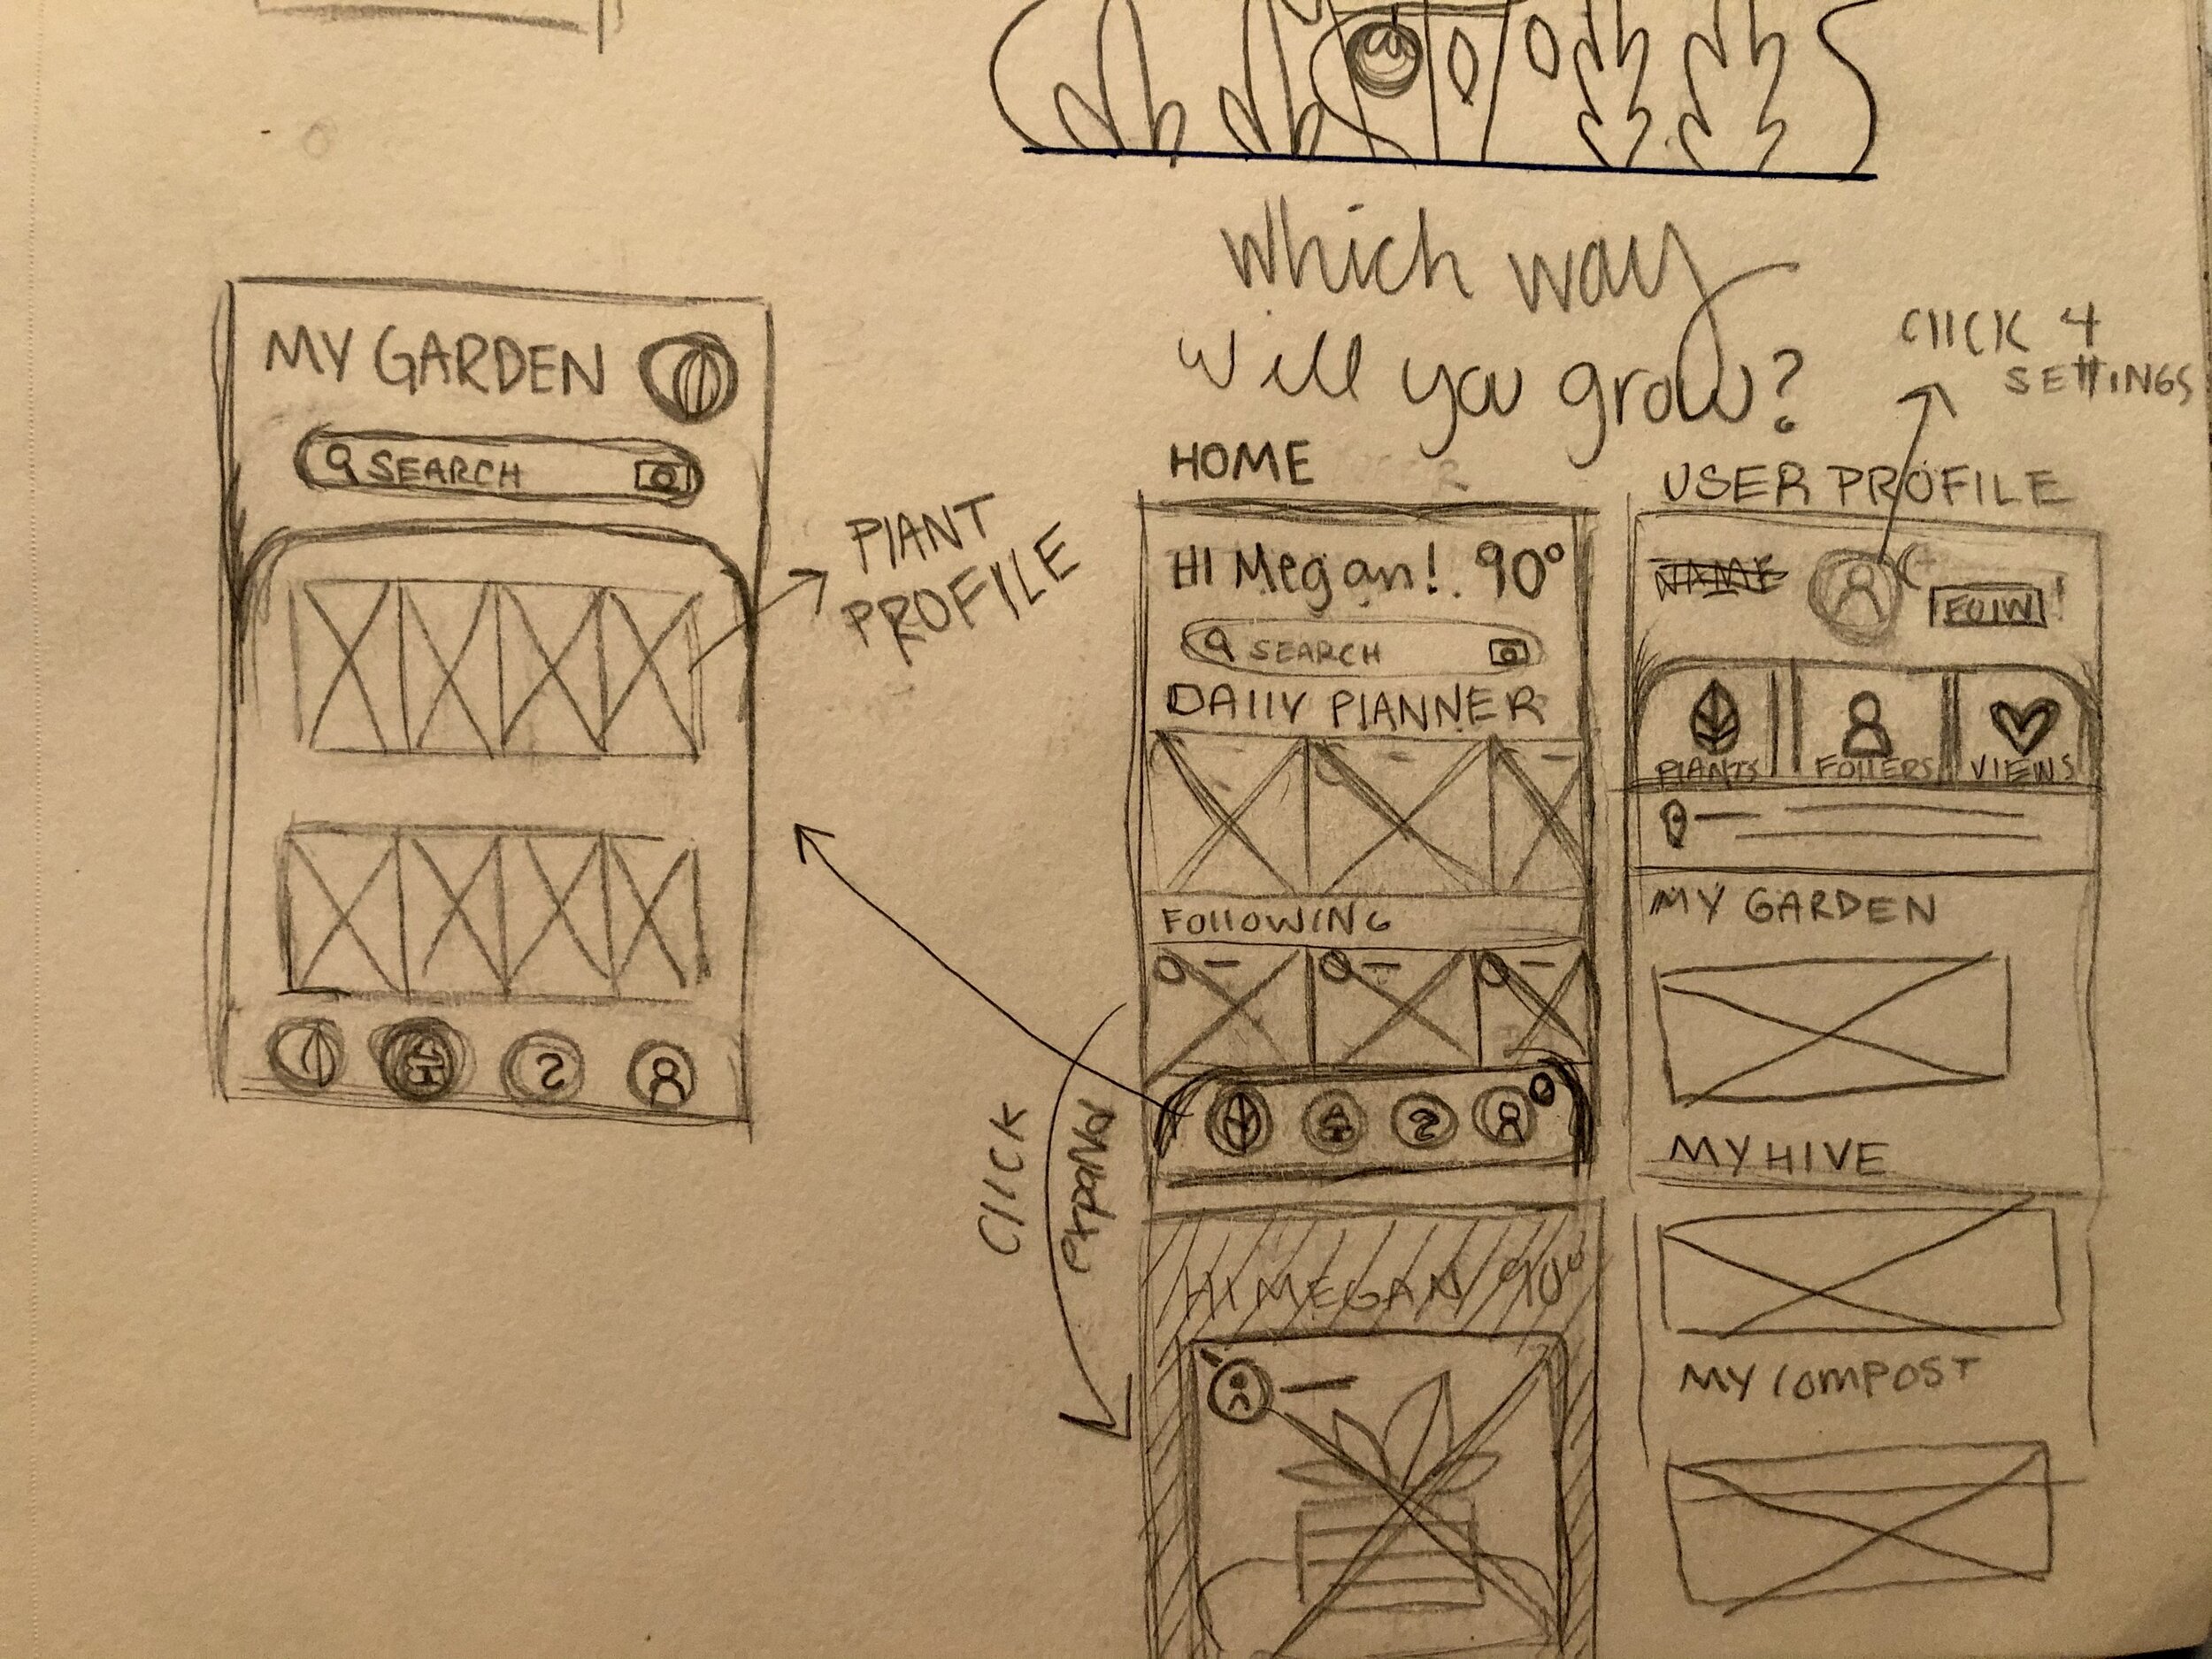 Which way
will you grow?
CLICK 4
SETTINGS
MY GARDEN
SEARCH
PLANT
PROFILE
HOME
HI Megan! 90°
SEARCH
DAILY PLANNER
FOLLOWING
CLICK
expand
HI MEGAN 90°
USER PROFILE
NAME
FOLLW
PLANTS FOLLERS VIEWS
MY GARDEN
MY HIVE
MY COMPOST